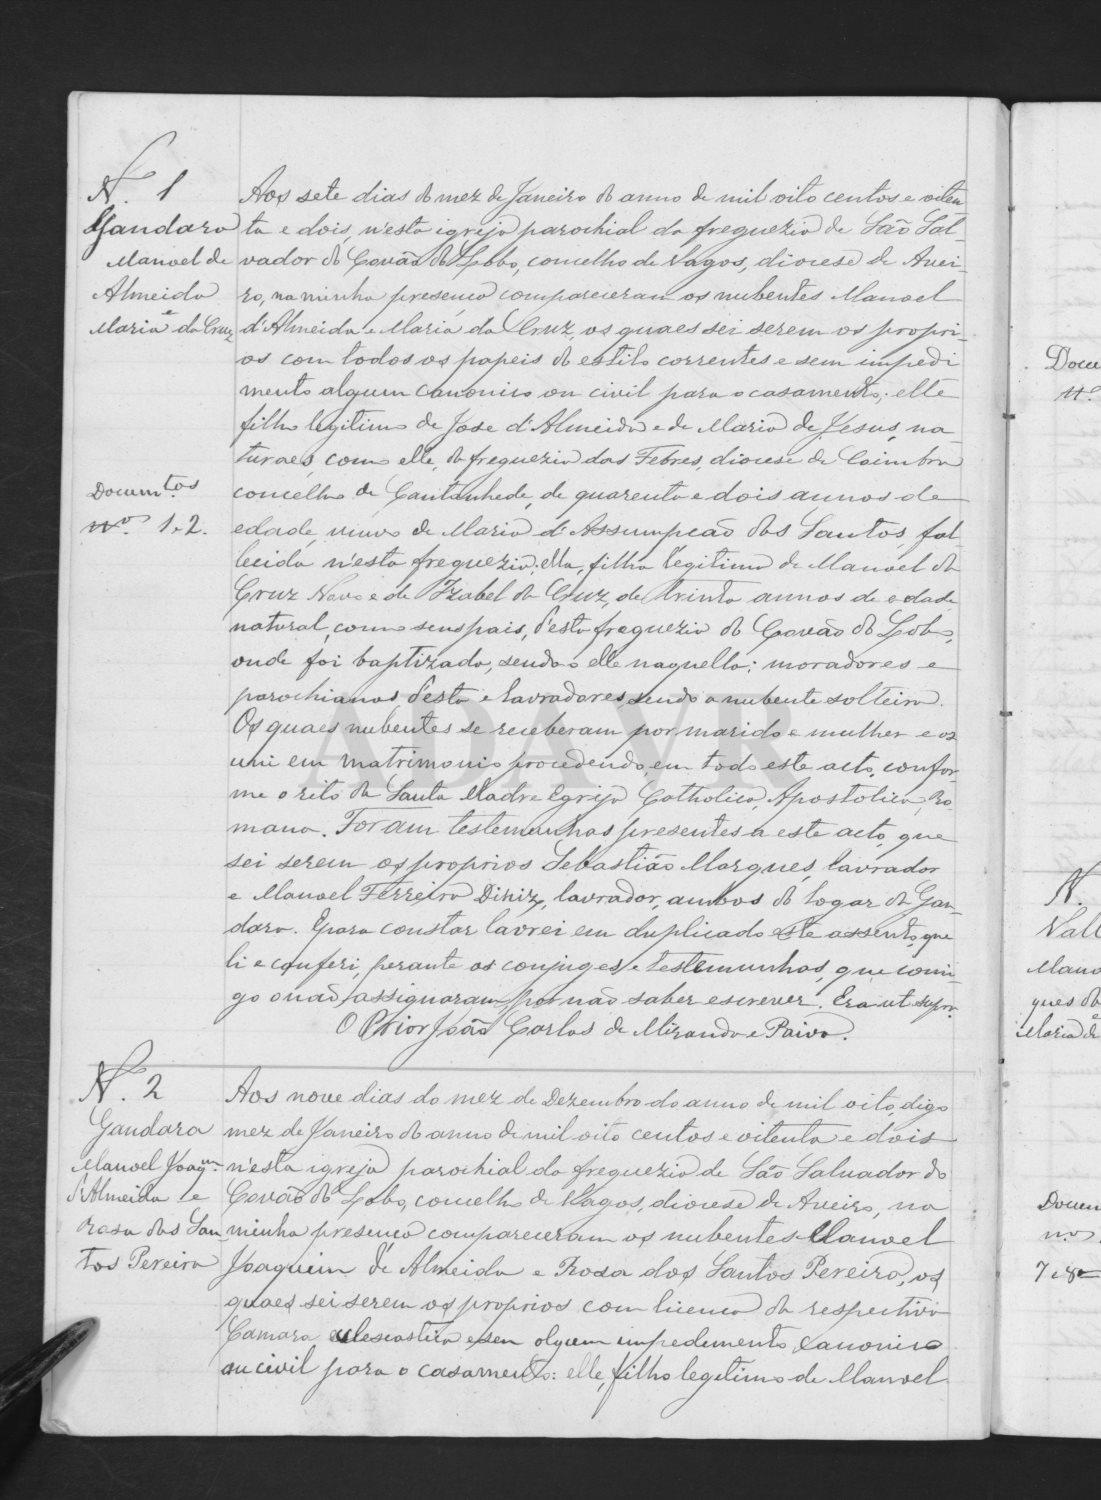 N.º 1
Gandara
Manoel de
Almeida
e
Maria da Cruz
Aos sete dias do mez de Janeiro do anno de mil oito centos e oiten
ta e dois, n'esta igreja parochial da freguezia de São Sal-
vador do Covão do Lobo, concelho de Vagos, diocese de Avei-
ro, na minha presença compareceram os nubentes Manoel
d'Almeida e Maria da Cruz, os quaes sei serem os propri-
os com todos os papeis do estilo correntes e sem impedi
mento algum canonico ou civil para o casamento; elle
filho legitimo de Jose d'Almeida e de Maria de Jesus, na-
turaes, como elle, da freguezia das Febres, diocese de Coimbra
Docum.tos
n.os 1 e 2.
concelho de Cantanhede, de quarenta e dois annos de
edade, viuvo de Maria d'Assumpcão dos Santos, fal-
lecida n'esta freguezia; ella, filha legitima de Manoel da
Cruz Novo e de Izabel da Cruz, de trinta annos de edade
natural, como seus pais, d'esta freguezia do Covão do Lobo,
onde foi baptizada, sendo o elle naquella; moradores e
parochianos d'esta e lavradores, sendo a nubente solteira.
Os quaes nubentes se receberam por marido e mulher e os
uni em matrimonio procedendo, em todo este acto, confor-
me o rito da Santa Madre Egreja Catholica, Apostolica, Ro
mana. Foram testemunhas presentes a este acto, que
sei serem os proprios Sebastião Marques, lavrador
e Manoel Ferreira Diniz, lavrador, ambos do logar da Gan-
dara. E para constar lavrei em duplicado este assento, que
li e conferi, perante os conjuges e testemunhas, que comi-
go o não assignaram, por não saber escrever. Era ut supra.
O Prior João Carlos de Miranda e Paiva.
N.º 2
Gandara
Manoel Joaqm
d'Almeida e
Rosa dos San
tos Pereira
Aos nove dias do mez de Dezembro do anno de mil oito, digo
mez de Janeiro do anno de mil oito centos e oitenta e dois
n'esta igreja parochial da freguezia de São Salvador do
Covão do Lobo, concelho de Vagos, diocese de Aveiro, na
minha presença compareceram os nubentes Manoel
Joaquim d'Almeida e Rosa dos Santos Pereira, os
quaes sei serem os proprios com licença da respectiva
Camara eclesiastica e sem algum impedimento canonico
ou civil para o casamento: elle, filho legitimo de Manoel
ADAVR
Docu
N.
Vall
Mano
ques do
e
Maria de
Docum
n.os
7 e 8